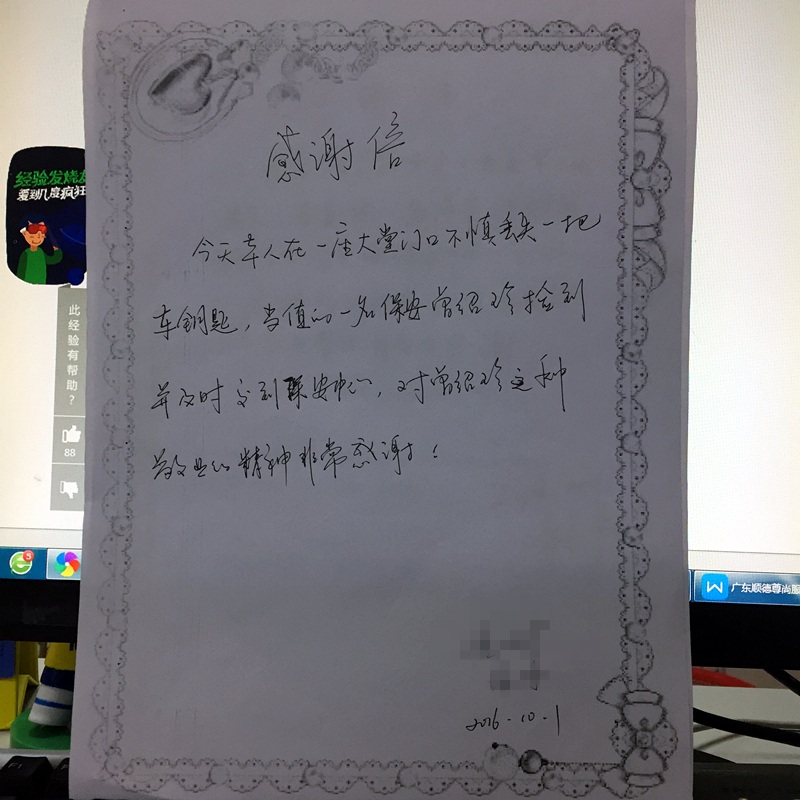 感谢信
今天本人在一座大堂门口不慎丢失一把
车钥匙，当值的一名保安曾绍珍捡到
并及时交到保安中心，对曾绍珍这种
敬业的精神非常感谢！
2016-10-1
经验发烧友
爱到几度疯狂
此经验有帮助？
88
广东顺德尊尚服